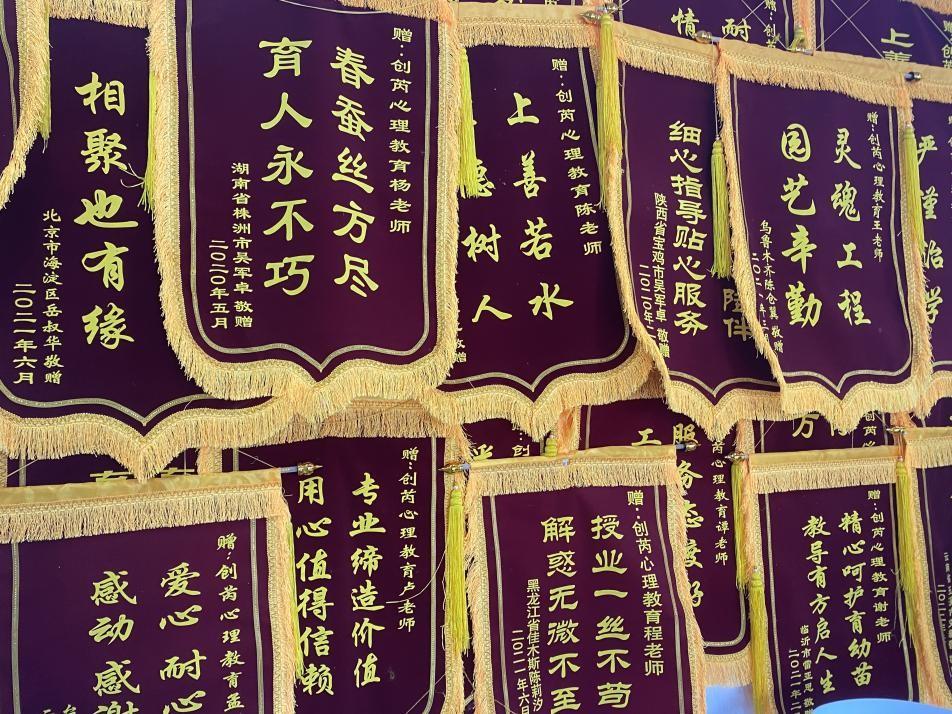 相聚也有缘
北京市海淀区岳叔华 敬赠
二〇二一年六月
赠：创芮心理教育杨老师
春蚕丝方尽
育人永不巧
湖南省株洲市吴军卓 敬赠
二〇二〇年五月
赠：创芮心理教育陈老师
上善若水
树人
敬赠
情
耐
细心指导贴心服务
陕西省宝鸡市吴军卓 敬赠
陪伴
赠：创芮心理教育王老师
灵魂工程
园艺辛勤
乌鲁木齐陈仓翼 敬赠
上善
严谨治学
赠：创芮心理教育孟
爱心耐心
感动感谢
赠：创芮心理教育卢老师
专业缔造价值
用心值得信赖
赠：创芮心理教育程老师
授业一丝不苟
解惑无微不至
黑龙江省佳木斯陈莉汐
二〇二一年六月
心理教育谭老师
服务态度好
赠：创芮心理教育谢老师
精心呵护育幼苗
教导有方启人生
临沂市雷亚恩 敬赠